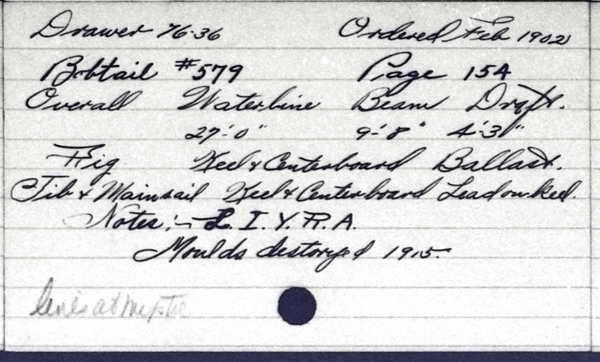 Drawer 76.36 Ordered Feb 1902
Bobtail #579 Page 154
Overall Waterline Beam Draft.
27'.0" 9'-8" 4'-3"
Rig Keel & Centerboard Ballast.
Jib & Mainsail Keel & Centerboard Lead on Keel.
Notes:- L. I. Y. R. A.
Moulds destoryed 1915.
lines at Mystic